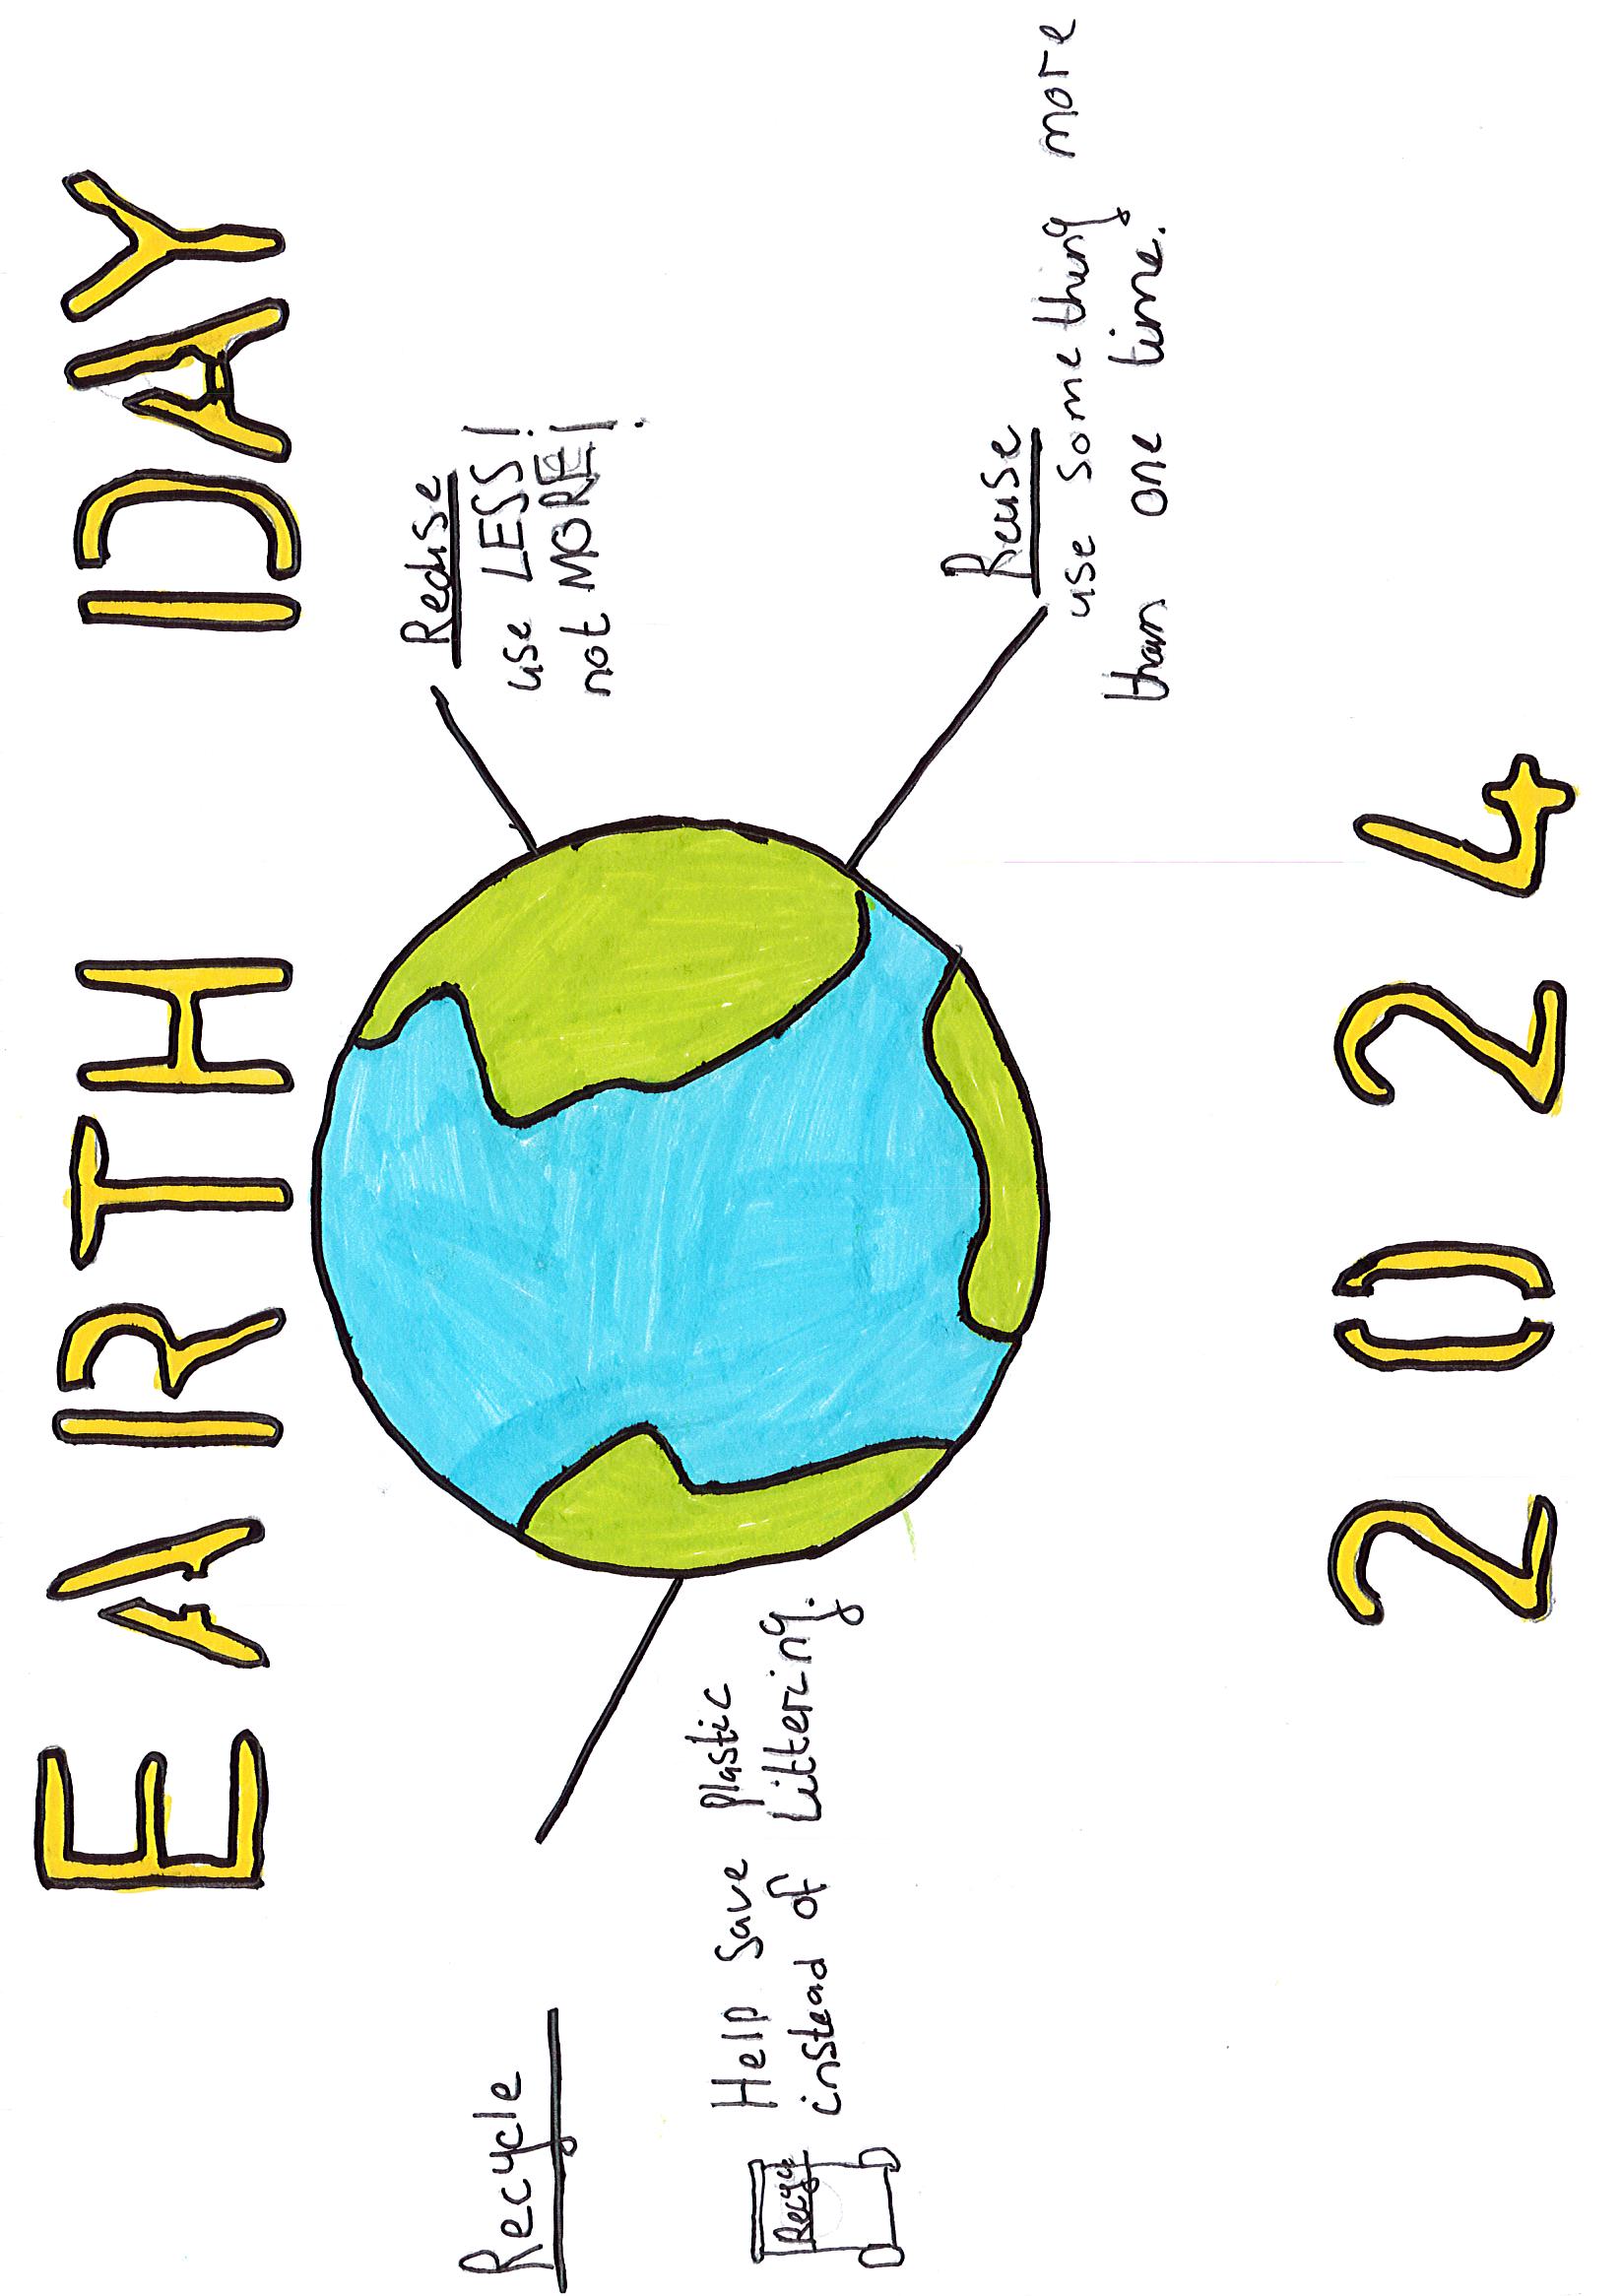 EARTH DAY
Reduse
use LESS!
not MORE!
Recycle
Help save plastic
instead of littering.
Recycle
Reuse
use something more
than one time.
2024